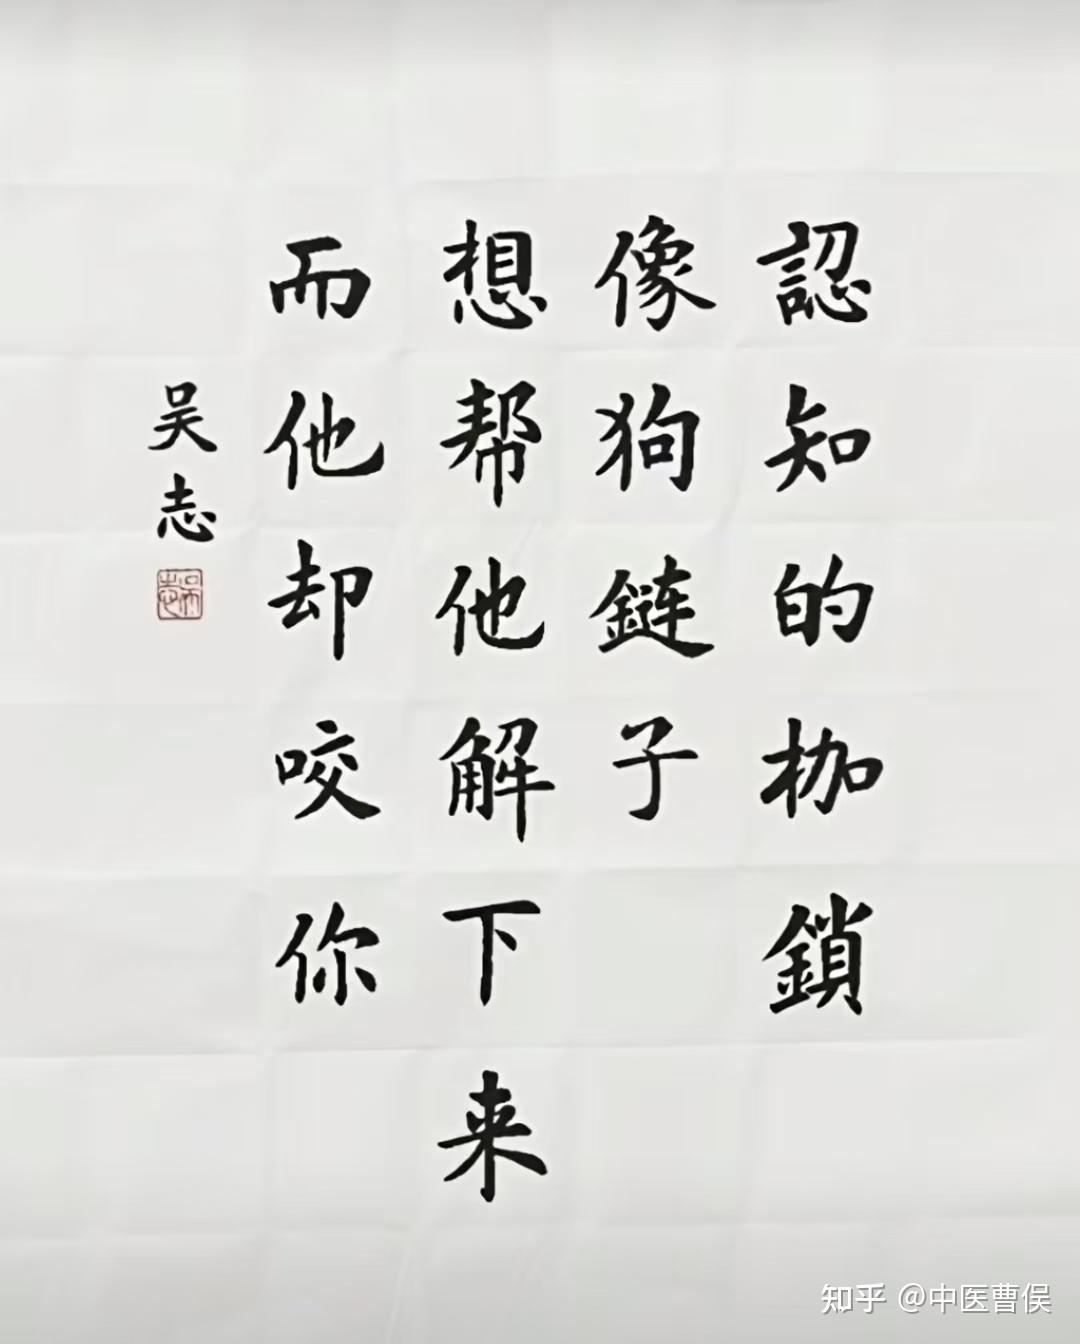 認知的枷鎖
像狗鏈子
想帮他解下来
而他却咬你
吴志
吴志
知乎 @中医曹俣